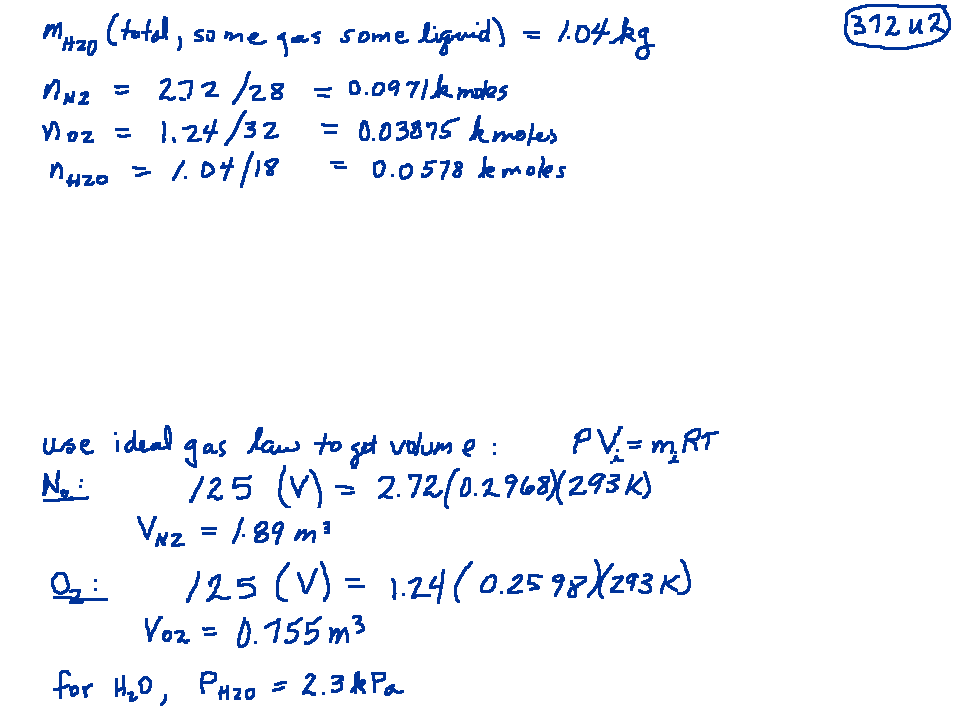 m_H2O (total, some gas some liquid) = 1.04 kg
312 u2
n_N2 = 2.72 / 28 = 0.0971 kmoles
n_O2 = 1.24 / 32 = 0.03875 kmoles
n_H2O = 1.04 / 18 = 0.0578 kmoles
use ideal gas law to get volume : P V_i = m_i RT
N₂ : 125 (V) = 2.72 (0.2968)(293 K)
V_N2 = 1.89 m³
O₂ : 125 (V) = 1.24 (0.2598)(293 K)
V_O2 = 0.755 m³
for H₂O, P_H2O = 2.3 kPa